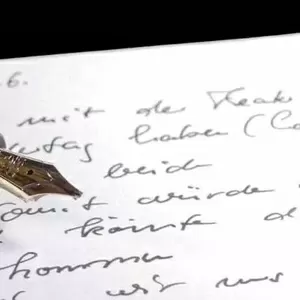 6.
mit der Reak
tag haben (Co
beid
somit würde
könnte d
komme
wir uns